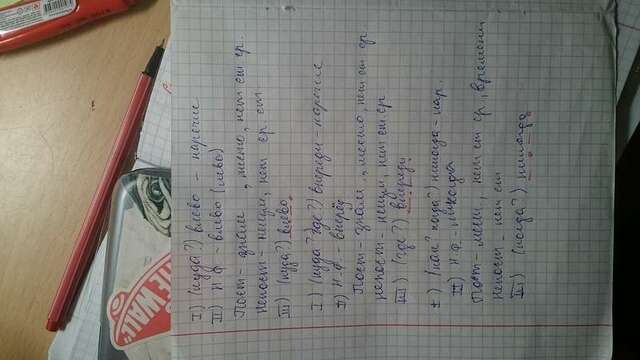 WALL"
I) (куда?) влево - наречие
II) Н.Ф. - влево (лево)
Пост - знам , место, нет ст ср.
Непост - неизм, нет ср. ст.
III) (куда?) влево
I) (куда? где?) впереди - наречие
II) Н.Ф. - вперёд
Пост - знам , место, нет ст. ср.
непост - неизм, нет ст. ср
III) (где?) впереди
I) (как? когда?) никогда - нар.
II) Н.Ф. - никогда
Пост - мест, нет ст ср, времени
Непост - нет ст
III) (когда?) никогда